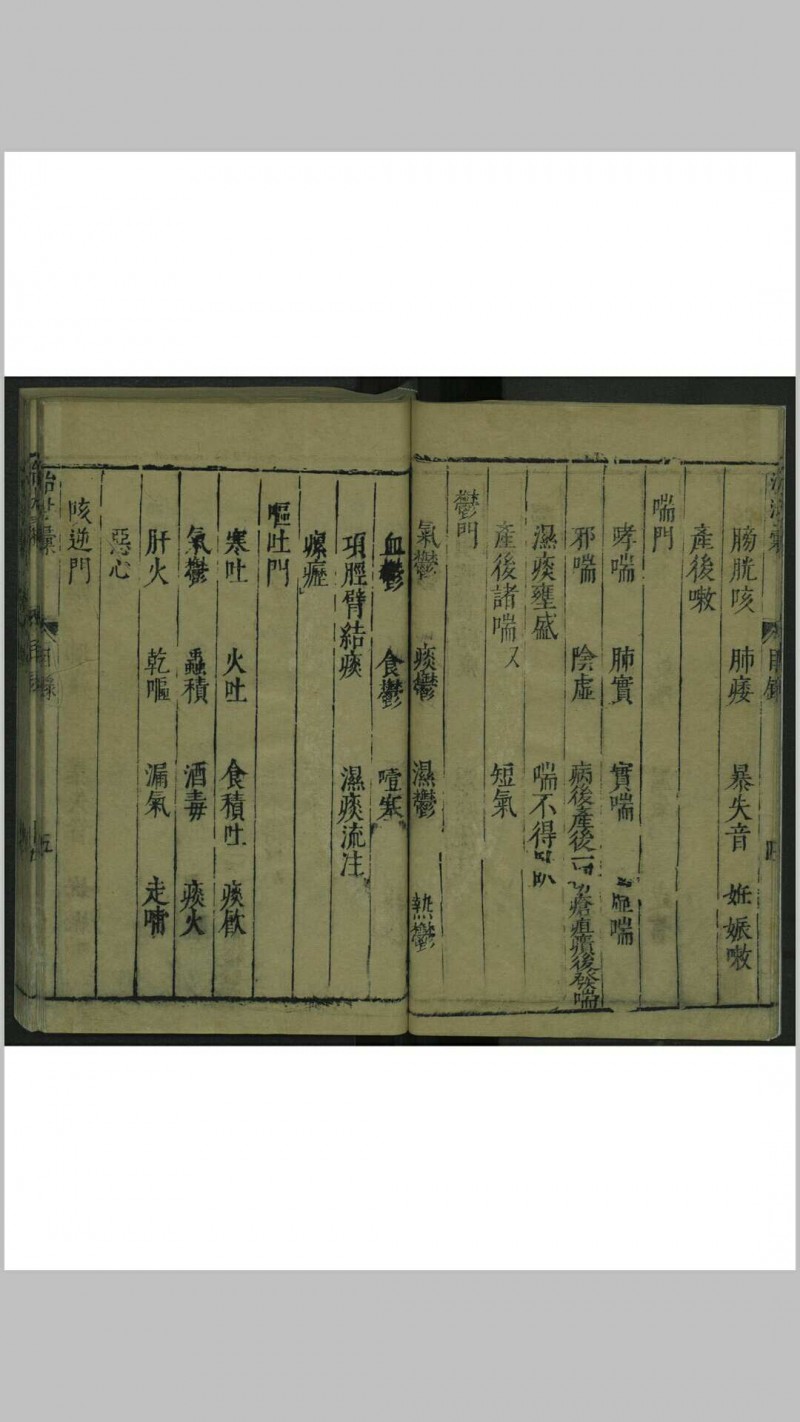 膀胱咳 肺痿 暴失音 妊娠嗽
產後嗽
喘門
哮喘 肺實 實喘 喘
邪喘 陰虛 病後產後 瘡疽潰後發喘
濕痰壅盛 喘不得臥
產後諸喘又 短氣
鬱門
氣鬱 痰鬱 濕鬱 熱鬱
血鬱 食鬱 噎寒
項脛臂結痰 濕痰流注
瘰癧
嘔吐門
寒吐 火吐 食積吐 痰飲
氣鬱 蟲積 酒毒 痰火
肝火 乾嘔 漏氣 走哺
惡心
咳逆門
目錄 五